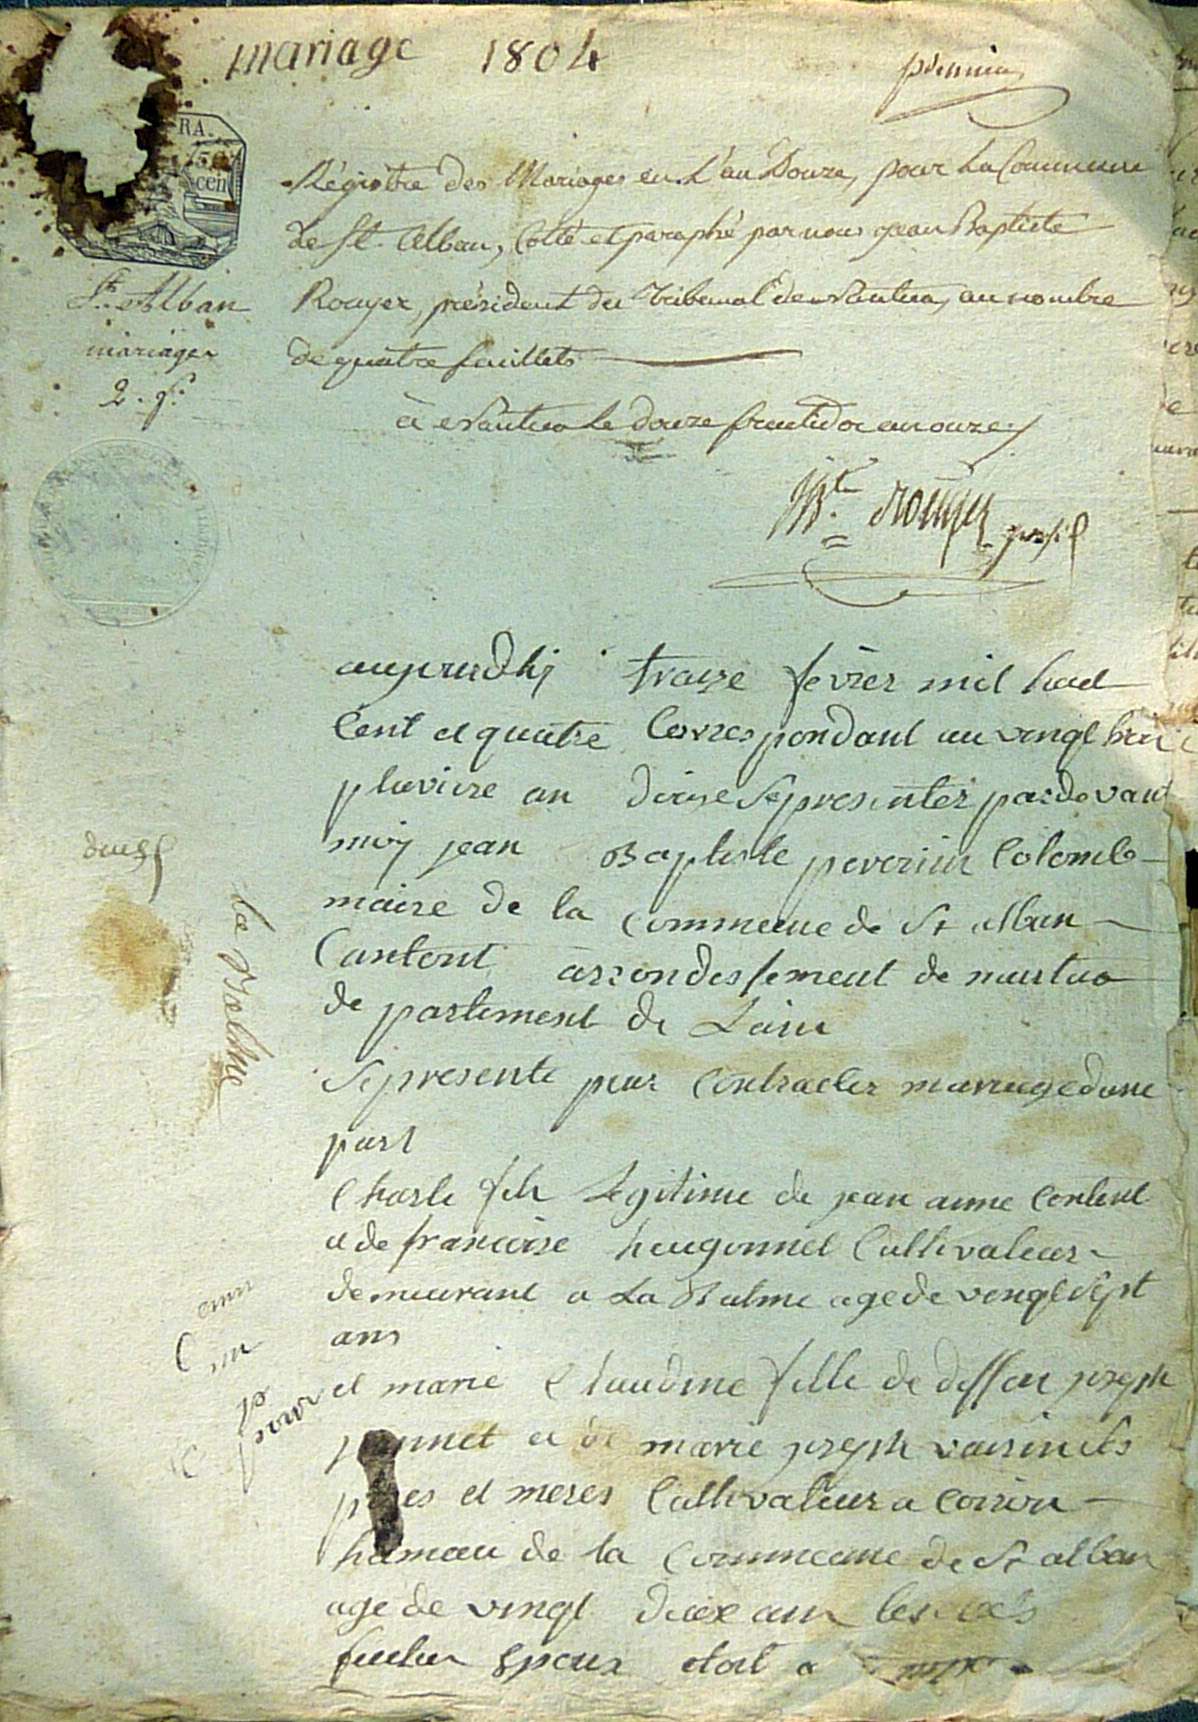 mariage 1804
premier
RA.
50
cent
Régistre des Mariages en L'an Douze, pour La Commune
de St. Alban, Cotté et paraphé par nous Jean Baptiste
Rouyer, président du Tribunal de Nantua, au nombre
de quatre feuillets
à Nantua le douze fructidor an onze
St. Alban
mariages
2. f.
JBte. Rouyer presid
aujourdhij traize fevrier mil huit
Cent et quatre Correspondant au vingt hui
pluviose an douze se presenter pardevant
moy jean Baptiste Colomb
maire de la Commune de St alban
Cantont arrondissement de nantua
de partement de Lain
Se presente pour Contracter mariage dune
part
Charle fils Legitime de jean anne
et de francoise hugonnet Cultivateur
demeurant a La Balme age de vingt sept
ans
et marie Claudine fille de deffeu joseph
et de marie joseph
peres et meres Cultivateur a
hameau de la Commune de St alban
age de vingt deux ans
futur Epoux etoit a
La Balme
pour